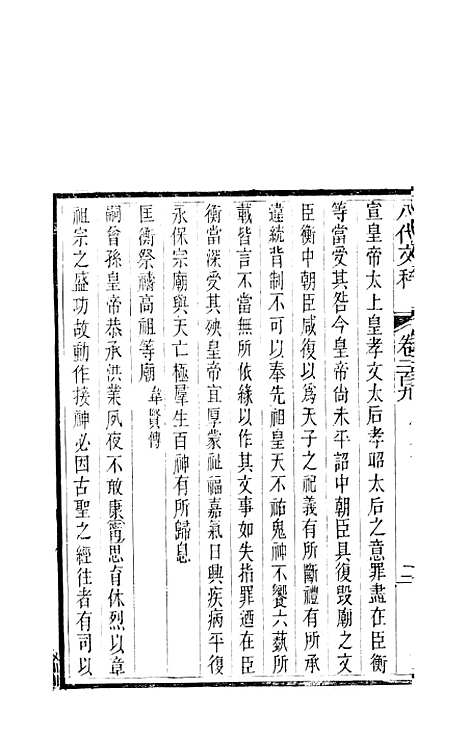 八代文粹 卷二百九 二
宣皇帝太上皇孝文太后孝昭太后之意罪盡在臣衡
等當受其咎今皇帝尚未平詔中朝臣具復毀廟之文
臣衡中朝臣咸復以爲天子之祀義有所斷禮有所承
違統背制不可以奉先祖皇天不祐鬼神不饗六蓺所
載皆言不當無所依緣以作其文事如失指罪迺在臣
衡當深受其殃皇帝宜厚蒙祉福嘉氣日興疾病平復
永保宗廟與天亡極羣生百神有所歸息
匡衡祭禱高祖等廟 韋賢傳
嗣曾孫皇帝恭承洪業夙夜不敢康寧思育休烈以章
祖宗之盛功故動作接神必因古聖之經往者有司以